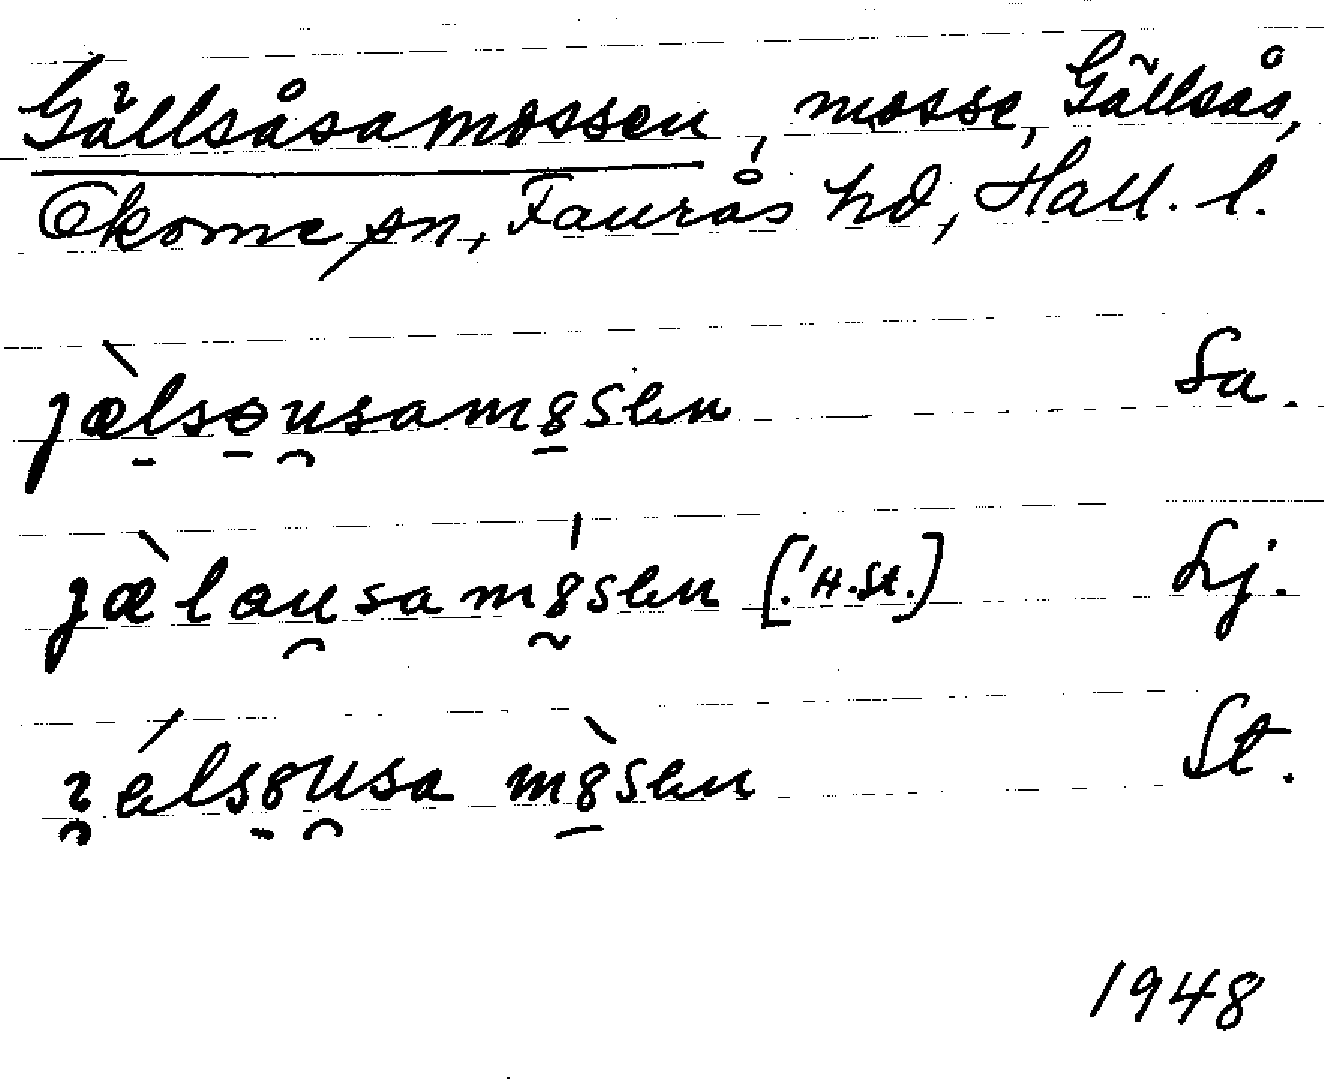 Gällsåsamossen, mosse, Gällsås,
Okome sn, Faurås hd, Hall. l.
jæ̀lsɵusamɞsen Sa.
jæ̀lɵusamɞ́sen [! H.St.] Lj.
ʒélsɞusa mɞ̀sen St.
1948